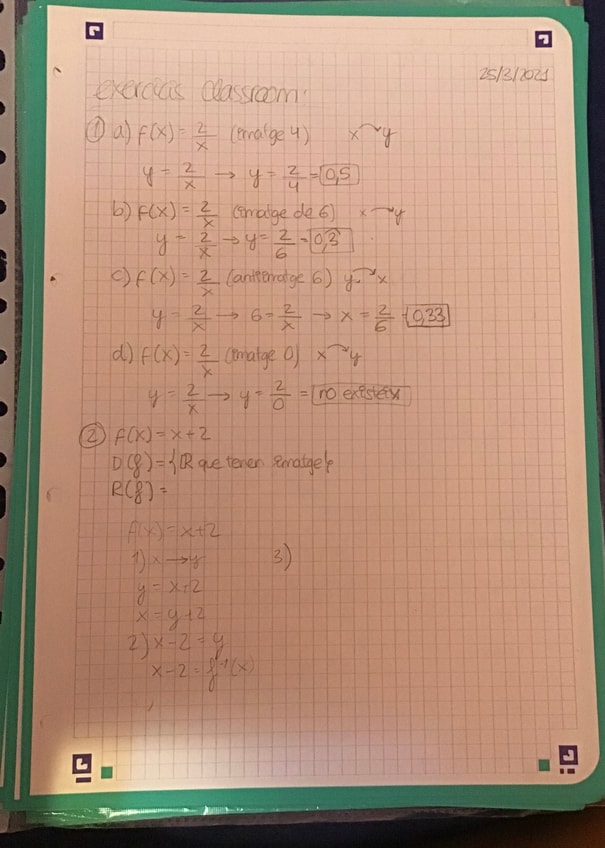 25/3/2021
exercicis classroom:
① a) f(x) = 2/x (imatge 4) x → y
y = 2/x → y = 2/4 = 0,5
b) f(x) = 2/x (imatge de 6) x → y
y = 2/x → y = 2/6 = 0,3
c) f(x) = 2/x (antiimatge 6) y → x
y = 2/x → 6 = 2/x → x = 2/6 = 0,33
d) f(x) = 2/x (imatge 0) x → y
y = 2/x → y = 2/0 = no existeix
② f(x) = x+2
D(f) = {ℝ que tenen imatge}
R(f) =
f(x) = x+2
1) x → y 3)
y = x+2
x = y+2
2) x-2 = y
x-2 = f⁻¹(x)